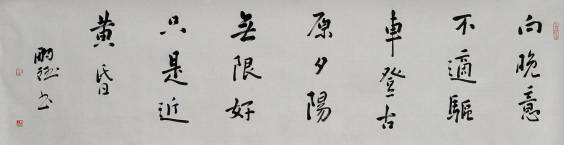 向晚意
不適驅
車登古
原夕陽
無限好
只是近
黃昏